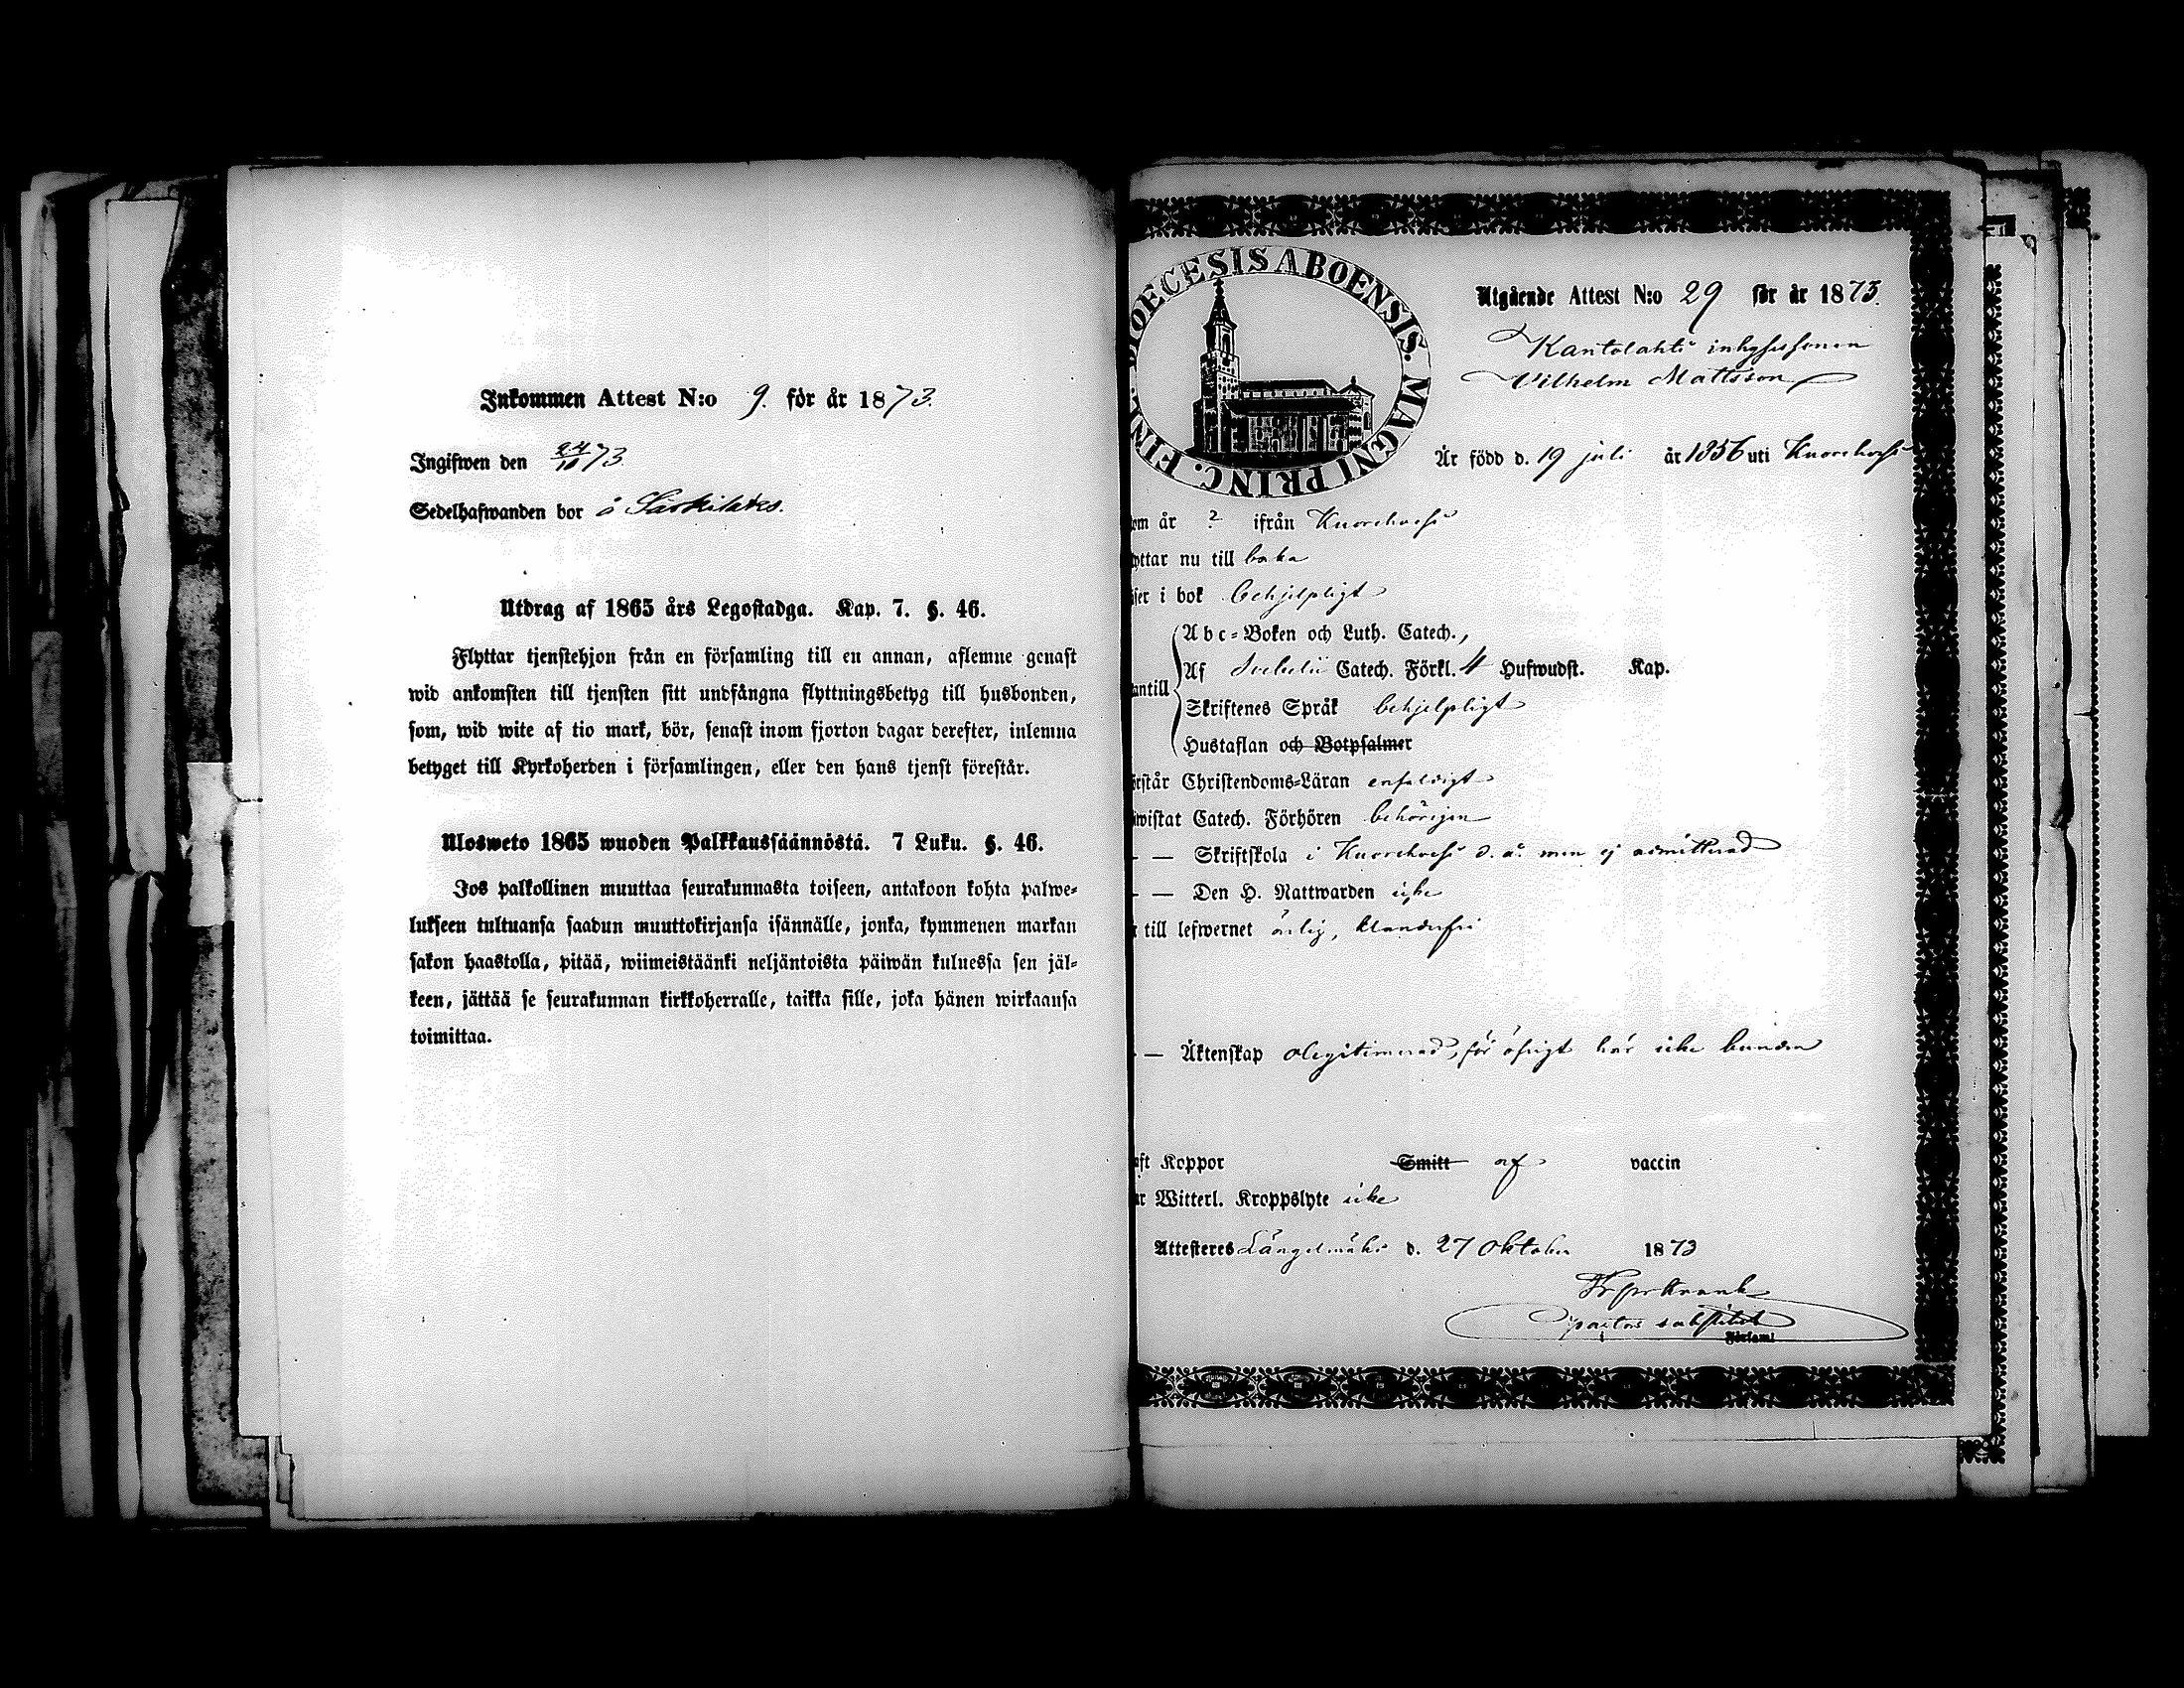 Inkommen Attest N:o 9. för år 1873.
Ingifwen den 24/10 73.
Sedelhafwanden bor å Särkilaks.
Utdrag af 1865 års Legostadga. Kap. 7. §. 46.
Flyttar tjenstehjon från en församling till en annan, aflemne genast
wid ankomsten till tjensten sitt undfångna flyttningsbetyg till husbonden,
som, wid wite af tio mark, bör, senast inom fjorton dagar derefter, inlemna
betyget till Kyrkoherden i församlingen, eller den hans tjenst förestår.
Ulosweto 1865 wuoden Palkkaussäännöstä. 7 Luku. §. 46.
Jos palkollinen muuttaa seurakunnasta toiseen, antakoon kohta palwe-
lukseen tultuansa saadun muuttokirjansa isännälle, jonka, kymmenen markan
sakon haastolla, pitää, wiimeistäänki neljäntoista päiwän kuluessa sen jäl-
keen, jättää se seurakunnan kirkkoherralle, taikka sille, joka hänen wirkaansa
toimittaa.
DIOECESIS ABOENSIS. MAGNI PRINC. FINL.
Utgående Attest N:o 29 för år 1873.
Kantolahti inhysessonen
Vilhelm Mattsson
Är född d. 19 juli år 1856 uti Kuorehvesi
om år ? ifrån Kuorehvesi
yttar nu till baka
ser i bok behjelpligt
antill
Abc-Boken och Luth. Catech.,
Af Svebelii Catech. Förkl. 4 Hufwudst. Kap.
Skriftenes Språk behjelpligt
Hustaflan och Botpsalmer
örstår Christendoms-Läran enfaldigt
wistat Catech. Förhören behörigen
— — Skriftskola i Kuorehvesi d. å. men ej admitterad
— — Den H. Nattwarden icke
till lefwernet ärlig, klanderfri
— — Äktenskap olegitimerad, för öfrigt här icke bunden
aft Koppor Smitt af vaccin
ar Witterl. Kroppslyte icke
Attesteres Längelmäki d. 27 Oktober 1873
pastors substitut
Församl